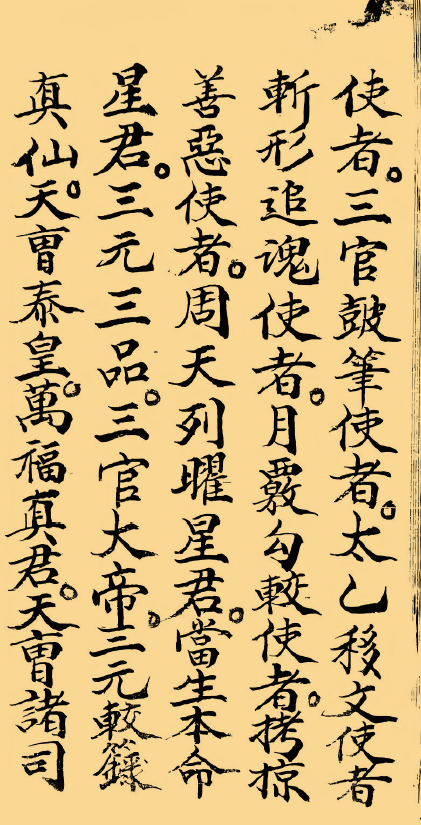 使者。三官皷筆使者。太乙移文使者
斬形追魂使者。月覈勾較使者。拷掠
善惡使者。周天列曜星君。當生本命
星君。三元三品。三官大帝。三元較籙
真仙。天曺泰皇。萬福真君。天曺諸司